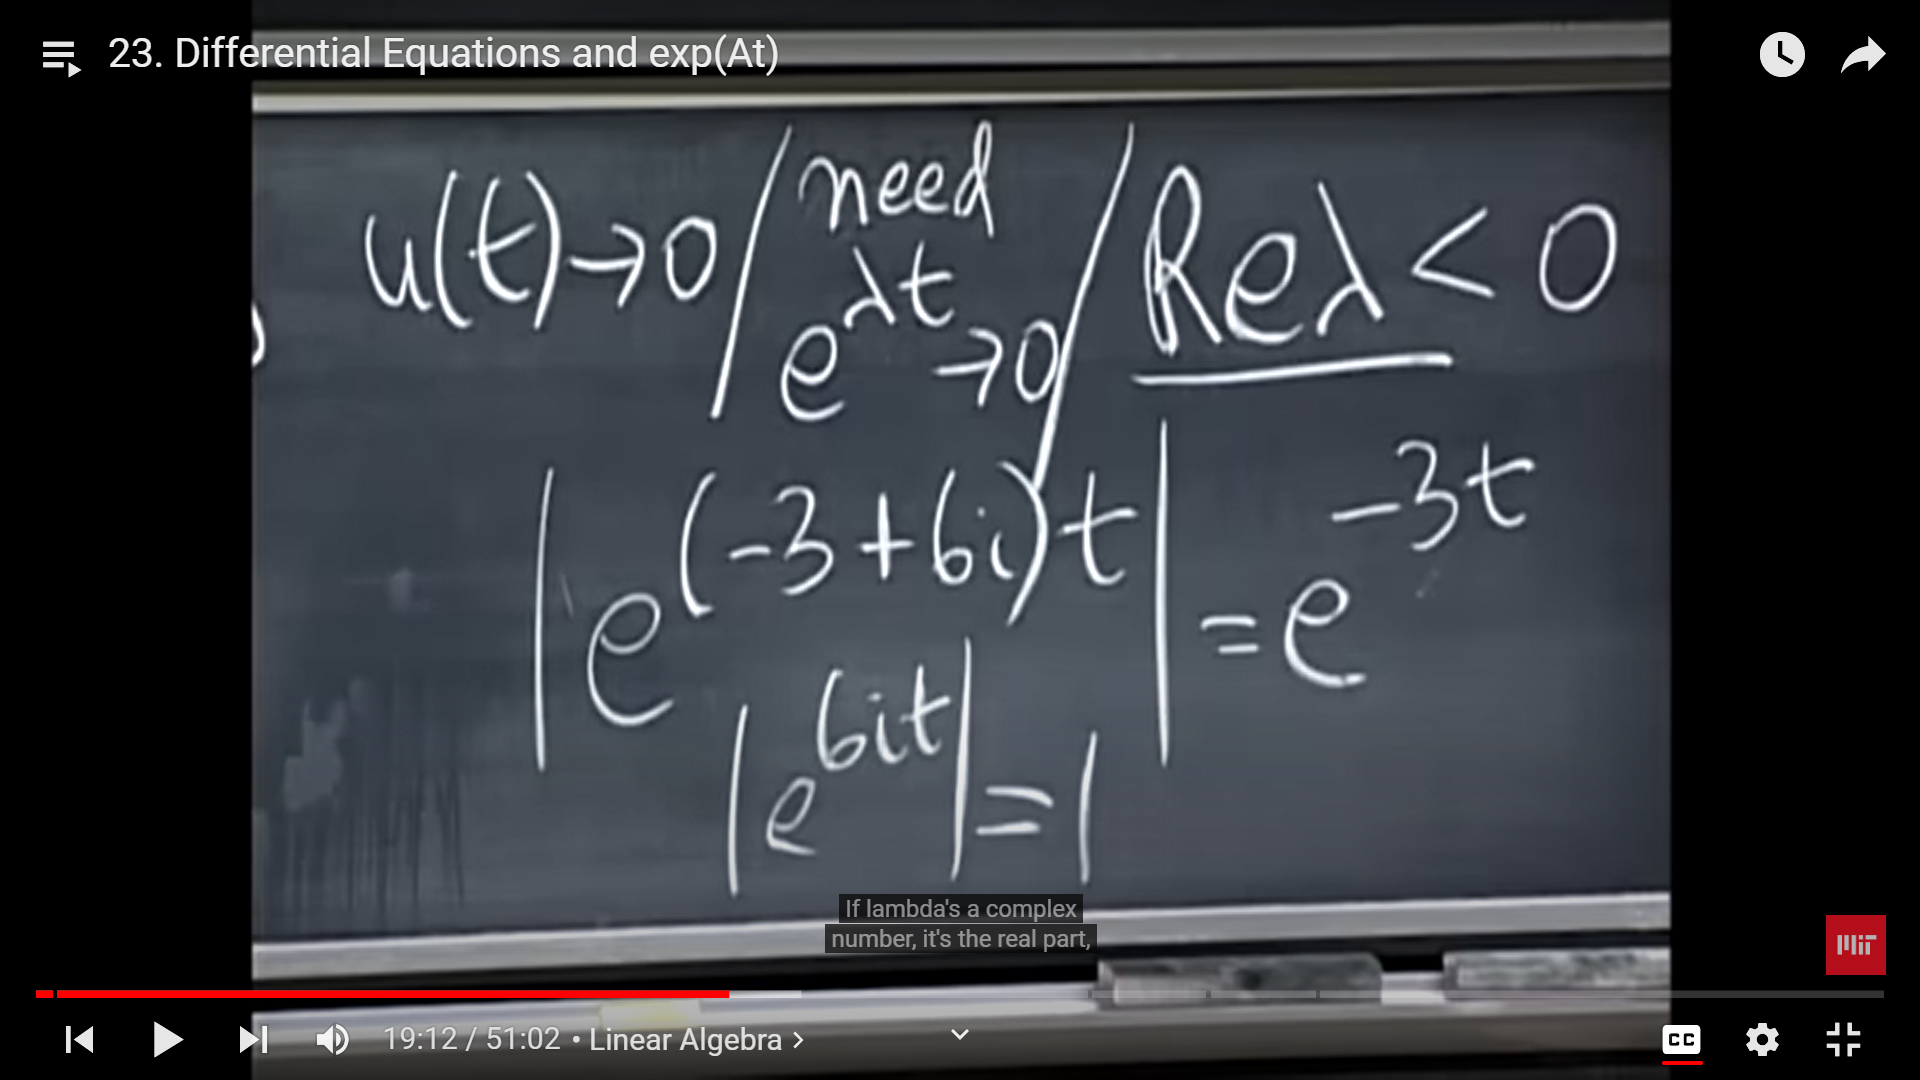 23. Differential Equations and exp(At)
u(t)→0 / need e^λt →0 / Reλ < 0
|e^(-3+6i)t| = e^-3t
|e^6it| = 1
If lambda's a complex
number, it's the real part,
MIT
19:12 / 51:02 • Linear Algebra >
CC